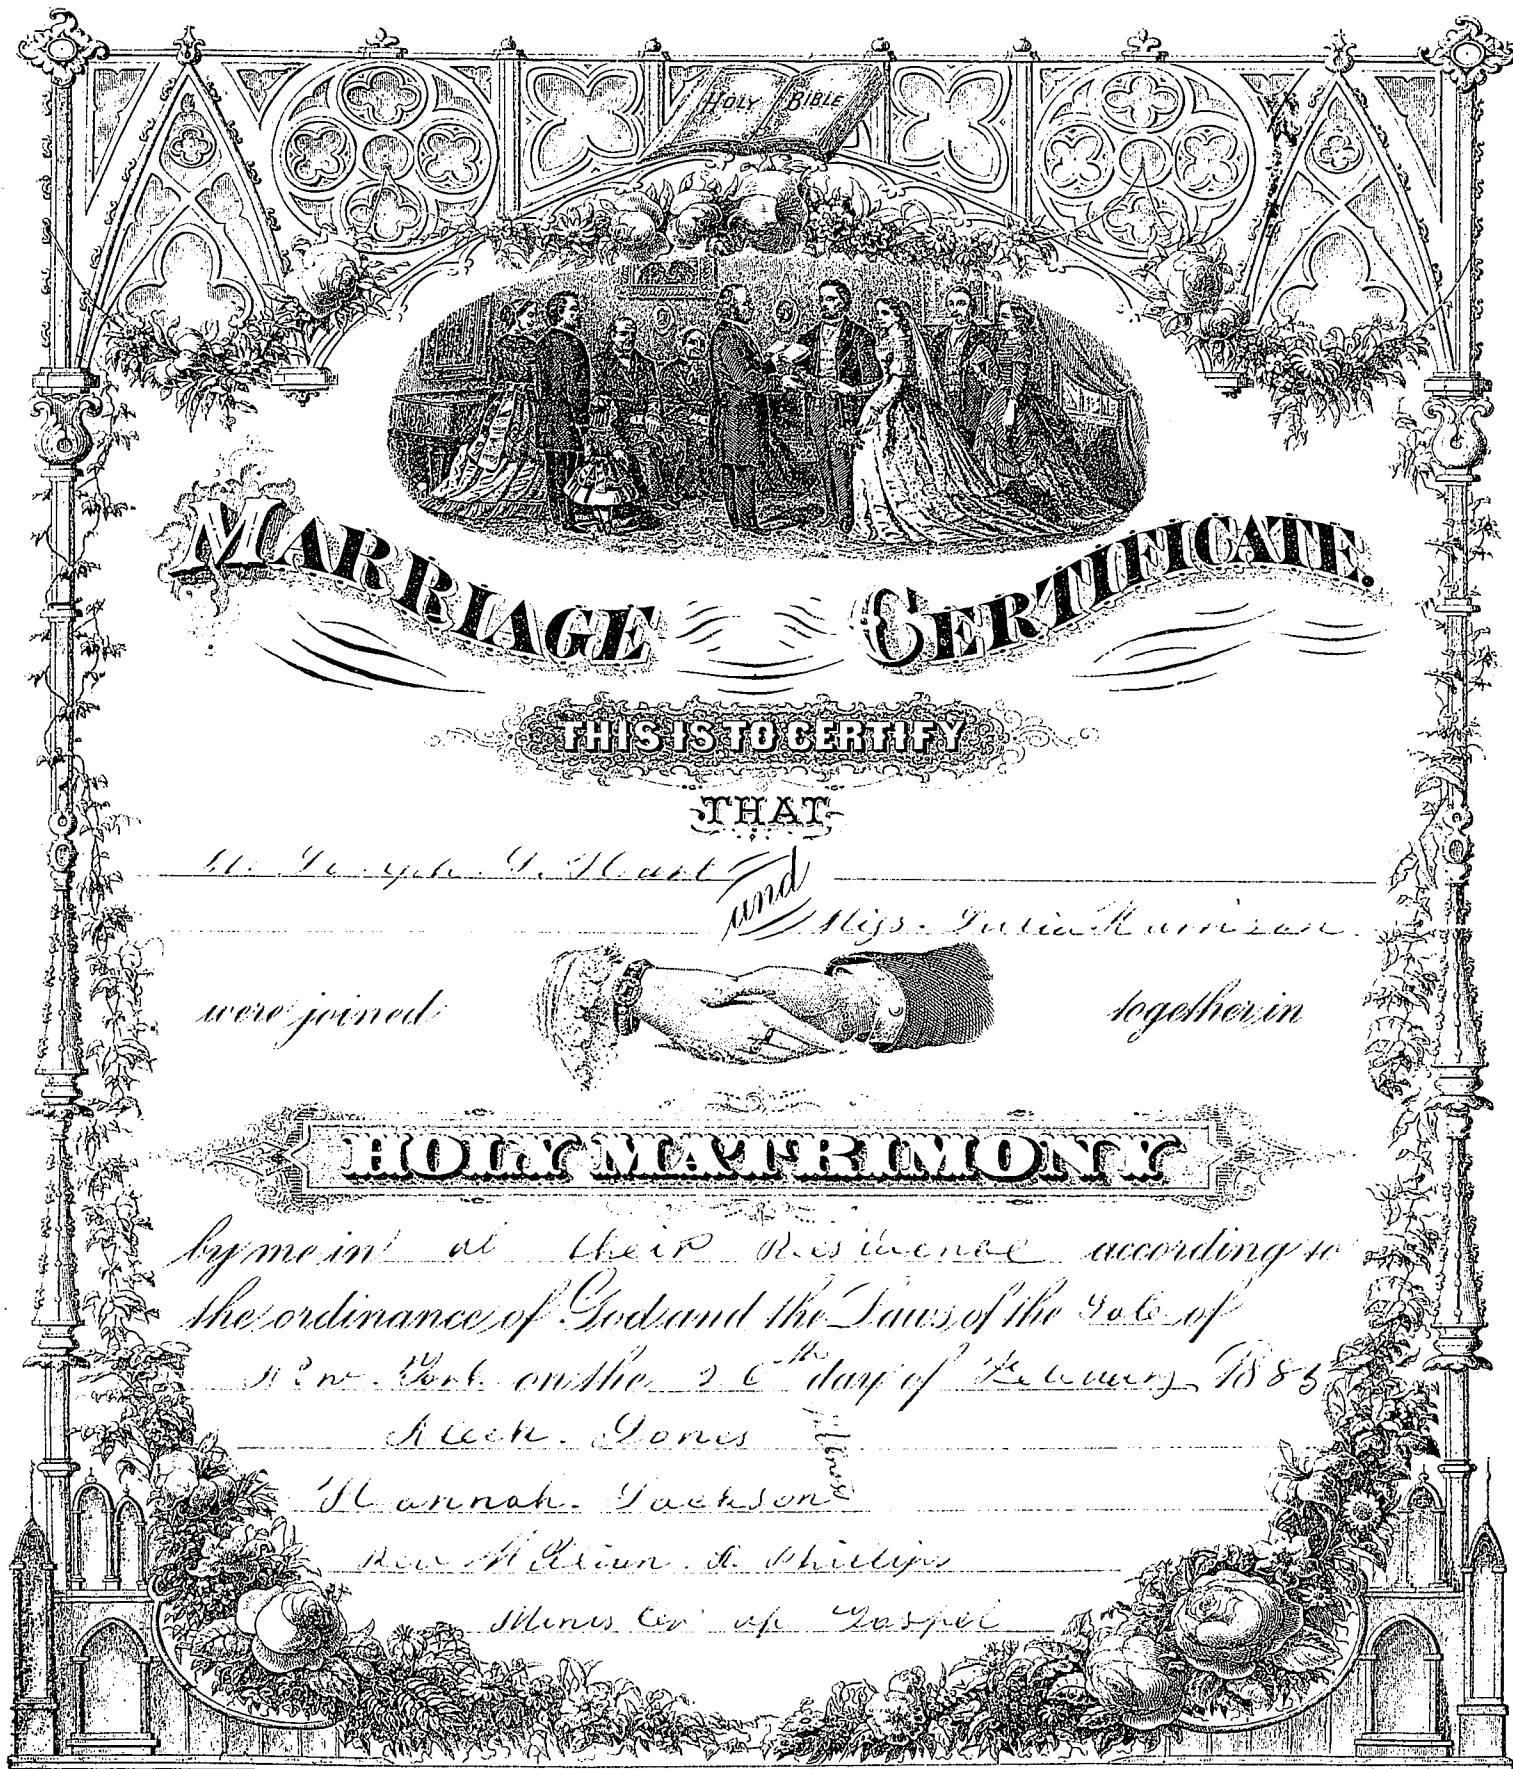 HOLY BIBLE
MARRIAGE CERTIFICATE.
THIS IS TO CERTIFY
THAT
Joseph
and
Miss. Julia
were joined together in
HOLY MATRIMONY
by me in at their Residence according to
the ordinance of God and the Laws of the of
New. York on the 26th day of February 1885
Jones
Hannah. Jackson
Rev William Phillips
Minister of Gospel